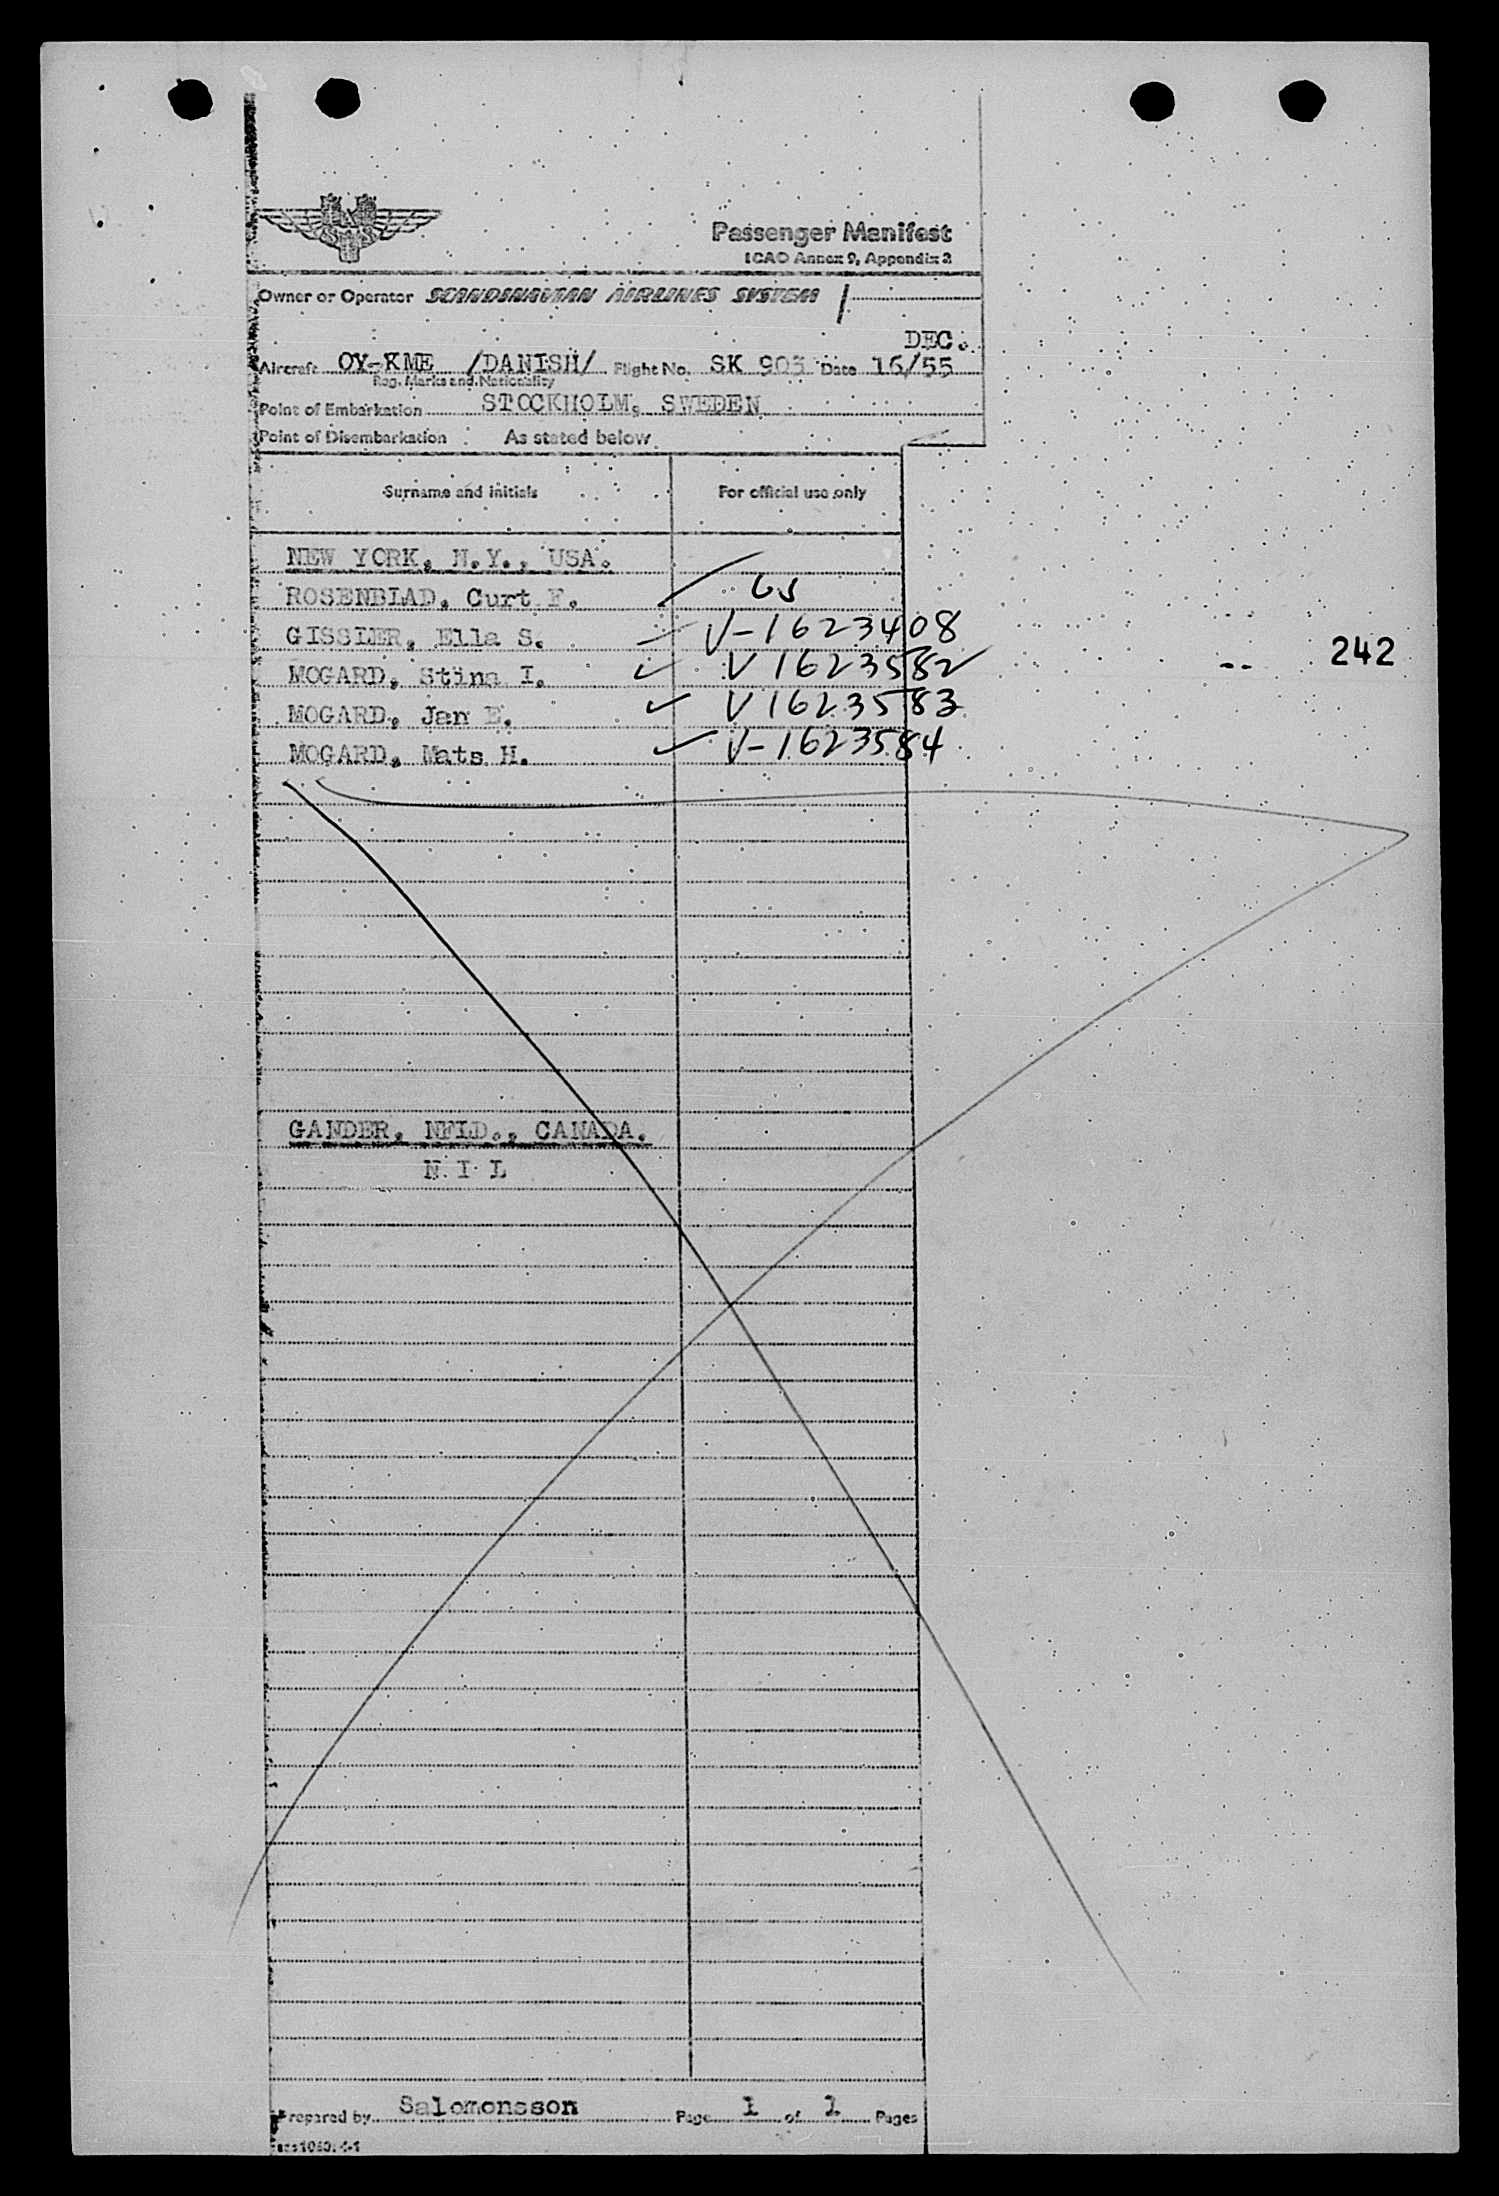 Passenger Manifest
ICAO Annex 9, Appendix 2
Owner or Operator SCANDINAVIAN AIRLINES SYSTEM
DEC.
Aircraft OY-KME /DANISH/ Flight No. SK 903 Date 16/55
Reg. Marks and Nationality
Point of Embarkation STOCKHOLM, SWEDEN
Point of Disembarkation As stated below
Surname and initials For official use only
NEW YORK, N.Y., USA.
ROSENBLAD, Curt F. US
GISSLER, Ella S. V-1623408
MOGARD, Stina I. V 1623582 -- 242
MOGARD, Jan E. V 1623583
MOGARD, Mats H. V-1623584
GANDER, NFLD., CANADA.
N I L
Prepared by Salomonsson Page 1 of 1 Pages